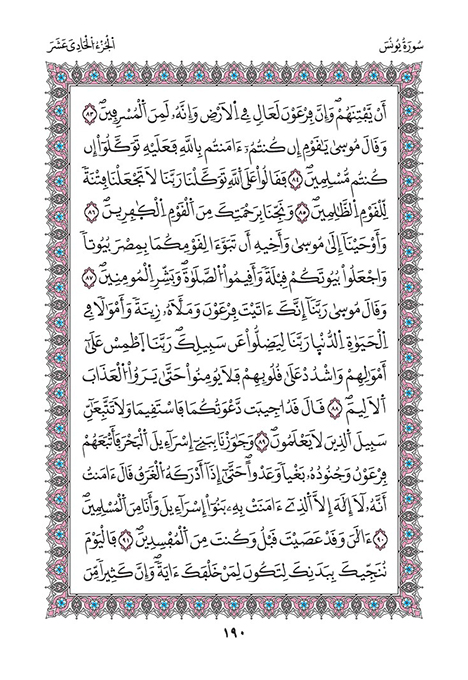 سُورَةُ يُونُسَ
الْجُزْءُ الْحَادِي عَشَرَ
أَنْ يَّفْتِنَهُمْ وَإِنَّ فِرْعَوْنَ لَعَالٍ فِي اِلَارْضِ وَإِنَّهُۥ لَمِنَ اَلْمُسْرِفِينَ ٨٣
وَقَالَ مُوسَىٰ يَٰقَوْمِ إِن كُنتُمُۥٓ ءَامَنتُم بِاللَّهِ فَعَلَيْهِ تَوَكَّلُوٓاْ إِن
كُنتُم مُّسْلِمِينَ ٨٤ فَقَالُواْ عَلَى اَللَّهِ تَوَكَّلْنَا رَبَّنَا لَا تَجْعَلْنَا فِتْنَةً
لِّلْقَوْمِ اِلظَّٰلِمِينَ ٨٥ وَنَجِّنَا بِرَحْمَتِكَ مِنَ اَلْقَوْمِ اِلْكٰفِرِينَ ٨٦
وَأَوْحَيْنَآ إِلَىٰ مُوسَىٰ وَأَخِيهِ أَن تَبَوَّءَا لِقَوْمِكُمَا بِمِصْرَ بُيُوتاً
وَاجْعَلُواْ بُيُوتَكُمْ قِبْلَةً وَأَقِيمُواْ اُلصَّلَوٰةَ وَبَشِّرِ اِلْمُومِنِينَ ٨٧
وَقَالَ مُوسَىٰ رَبَّنَآ إِنَّكَ ءَاتَيْتَ فِرْعَوْنَ وَمَلَأَهُۥ زِينَةً وَأَمْوَٰلًا فِي
اِلْحَيَوٰةِ اِلدُّنْيَا رَبَّنَا لِيَضِلُّواْ عَن سَبِيلِكَ رَبَّنَا اَطْمِسْ عَلَىٰٓ
أَمْوَٰلِهِمْ وَاشْدُدْ عَلَىٰ قُلُوبِهِمْ فَلَا يُومِنُواْ حَتَّىٰ يَرَوُاْ اُلْعَذَابَ
اَلَالِيمَ ٨٨ قَالَ قَدُ ا۟جِيبَت دَّعْوَتُكُمَا فَاسْتَقِيمَا وَلَا تَتَّبِعَٰٓنِّ
سَبِيلَ اَلذِينَ لَا يَعْلَمُونَ ٨٩ وَجَٰوَزْنَا بِبَنِےٓ إِسْرَآءِيلَ اَلْبَحْرَ فَأَتْبَعَهُمْ
فِرْعَوْنُ وَجُنُودُهُۥ بَغْياً وَعَدْواً حَتَّىٰٓ إِذَآ أَدْرَكَهُ اُلْغَرَقُ قَالَ ءَامَنتُ
أَنَّهُۥ لَآ إِلَٰهَ إِلَّا اَلذِےٓ ءَامَنَتْ بِهِۦ بَنُوٓاْ إِسْرَآءِيلَ وَأَنَا مِنَ اَلْمُسْلِمِينَ
٩٠ ءَآلَٰنَ وَقَدْ عَصَيْتَ قَبْلُ وَكُنتَ مِنَ اَلْمُفْسِدِينَ ٩١ فَالْيَوْمَ
نُنَجِّيكَ بِبَدَنِكَ لِتَكُونَ لِمَنْ خَلْفَكَ ءَايَةً وَإِنَّ كَثِيراً مِّنَ
١٩٠